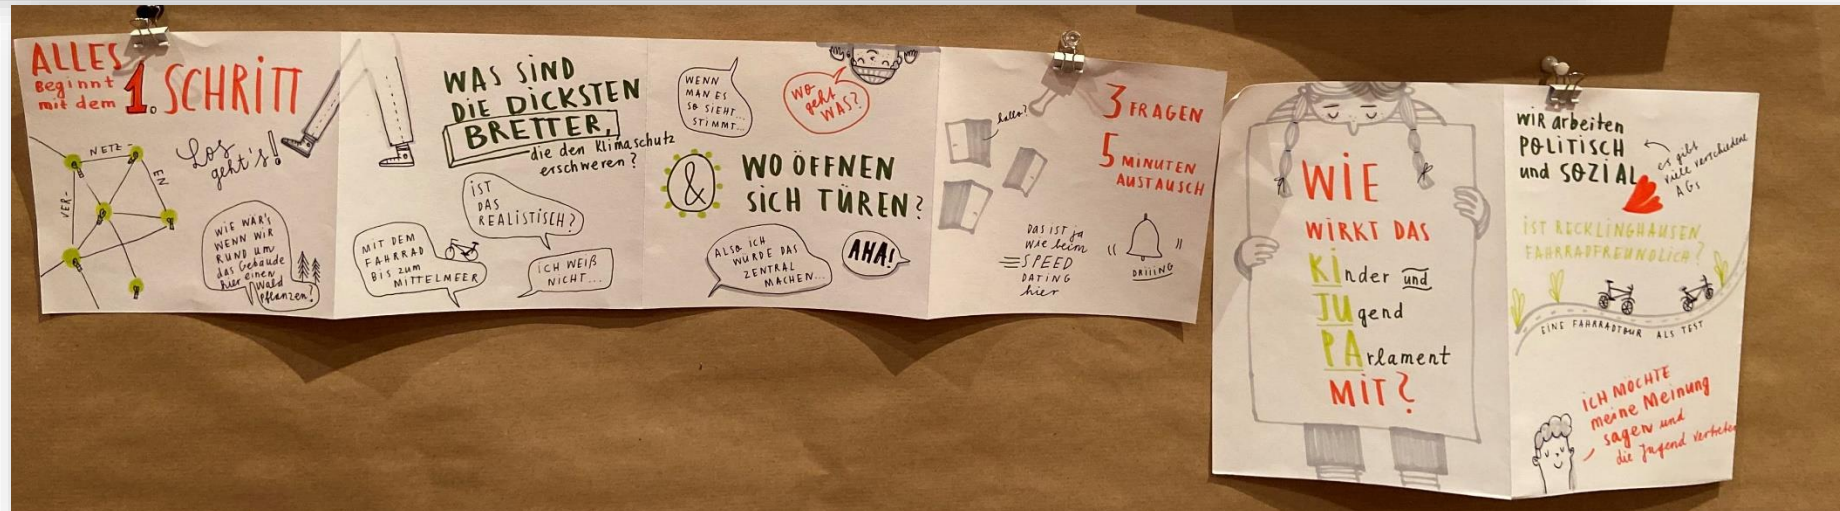 ALLES
Beginnt
mit dem
1. SCHRITT
Los
geht's!
VER-
NETZ-
EN
WIE WÄR'S
WENN WIR
RUND um
das Gebäude
hier einen
Wald
Pflanzen?
WAS SIND
DIE DICKSTEN
BRETTER,
die den Klimaschutz
erschweren?
IST
DAS
REALISTISCH?
MIT DEM
FAHRRAD
BIS zum
MITTELMEER
ICH WEIß
NICHT...
WENN
MAN ES
SO SIEHT...
STIMMT...
WO
geht
WAS?
& WO ÖFFNEN
SICH TÜREN?
ALSO ICH
WÜRDE DAS
ZENTRAL
MACHEN...
AHA!
hallo?
3 FRAGEN
5 MINUTEN
AUSTAUSCH
DAS IST ja
WIE beim
SPEED
DATING
hier
DRIIING
WIE
WIRKT DAS
KInder und
JUgend
PArlament
MIT?
WIR arbeiten
POLITISCH
und SOZIAL
es gibt
viele verschiedene
AGs
IST RECKLINGHAUSEN
FAHRRADFREUNDLICH?
EINE FAHRRADTOUR ALS TEST
ICH MÖCHTE
meine Meinung
sagen und
die Jugend vertreten